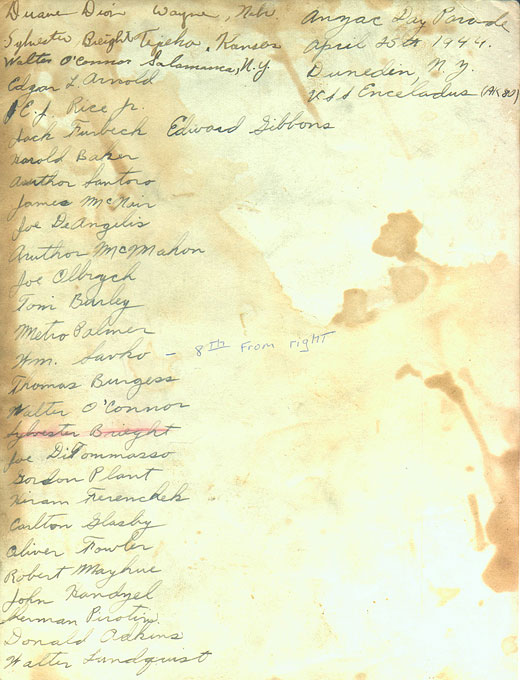 Duane Dion Wayne, Neb
Sylvester Bright Topeka, Kansas
Walter O'Connor Salamanca, N.Y.
Edgar L. Arnold
E. J. Rice Jr.
Jack Furbeck Edward Gibbons
Harold Baker
Arthor Santoro
James McNair
Joe DeAngelis
Aruthor McMahon
Joe Olbrych
Tom Burley
Metro Palmer
Wm. Savko - 8TH From right
Tromas Burgess
Walter O'Connor
Sylvester Brieght
Joe DiTommasso
Gordon Plant
Hiram Ferenchek
Carlton Glasby
Oliver Fowler
Robert Mayhue
John Kandzel
Herman
Donald Adkins
Walter Lundquist
Anzac Day Parade
April 25th 1944.
Dunedin, N.Z.
USS Enceladus (AK80)